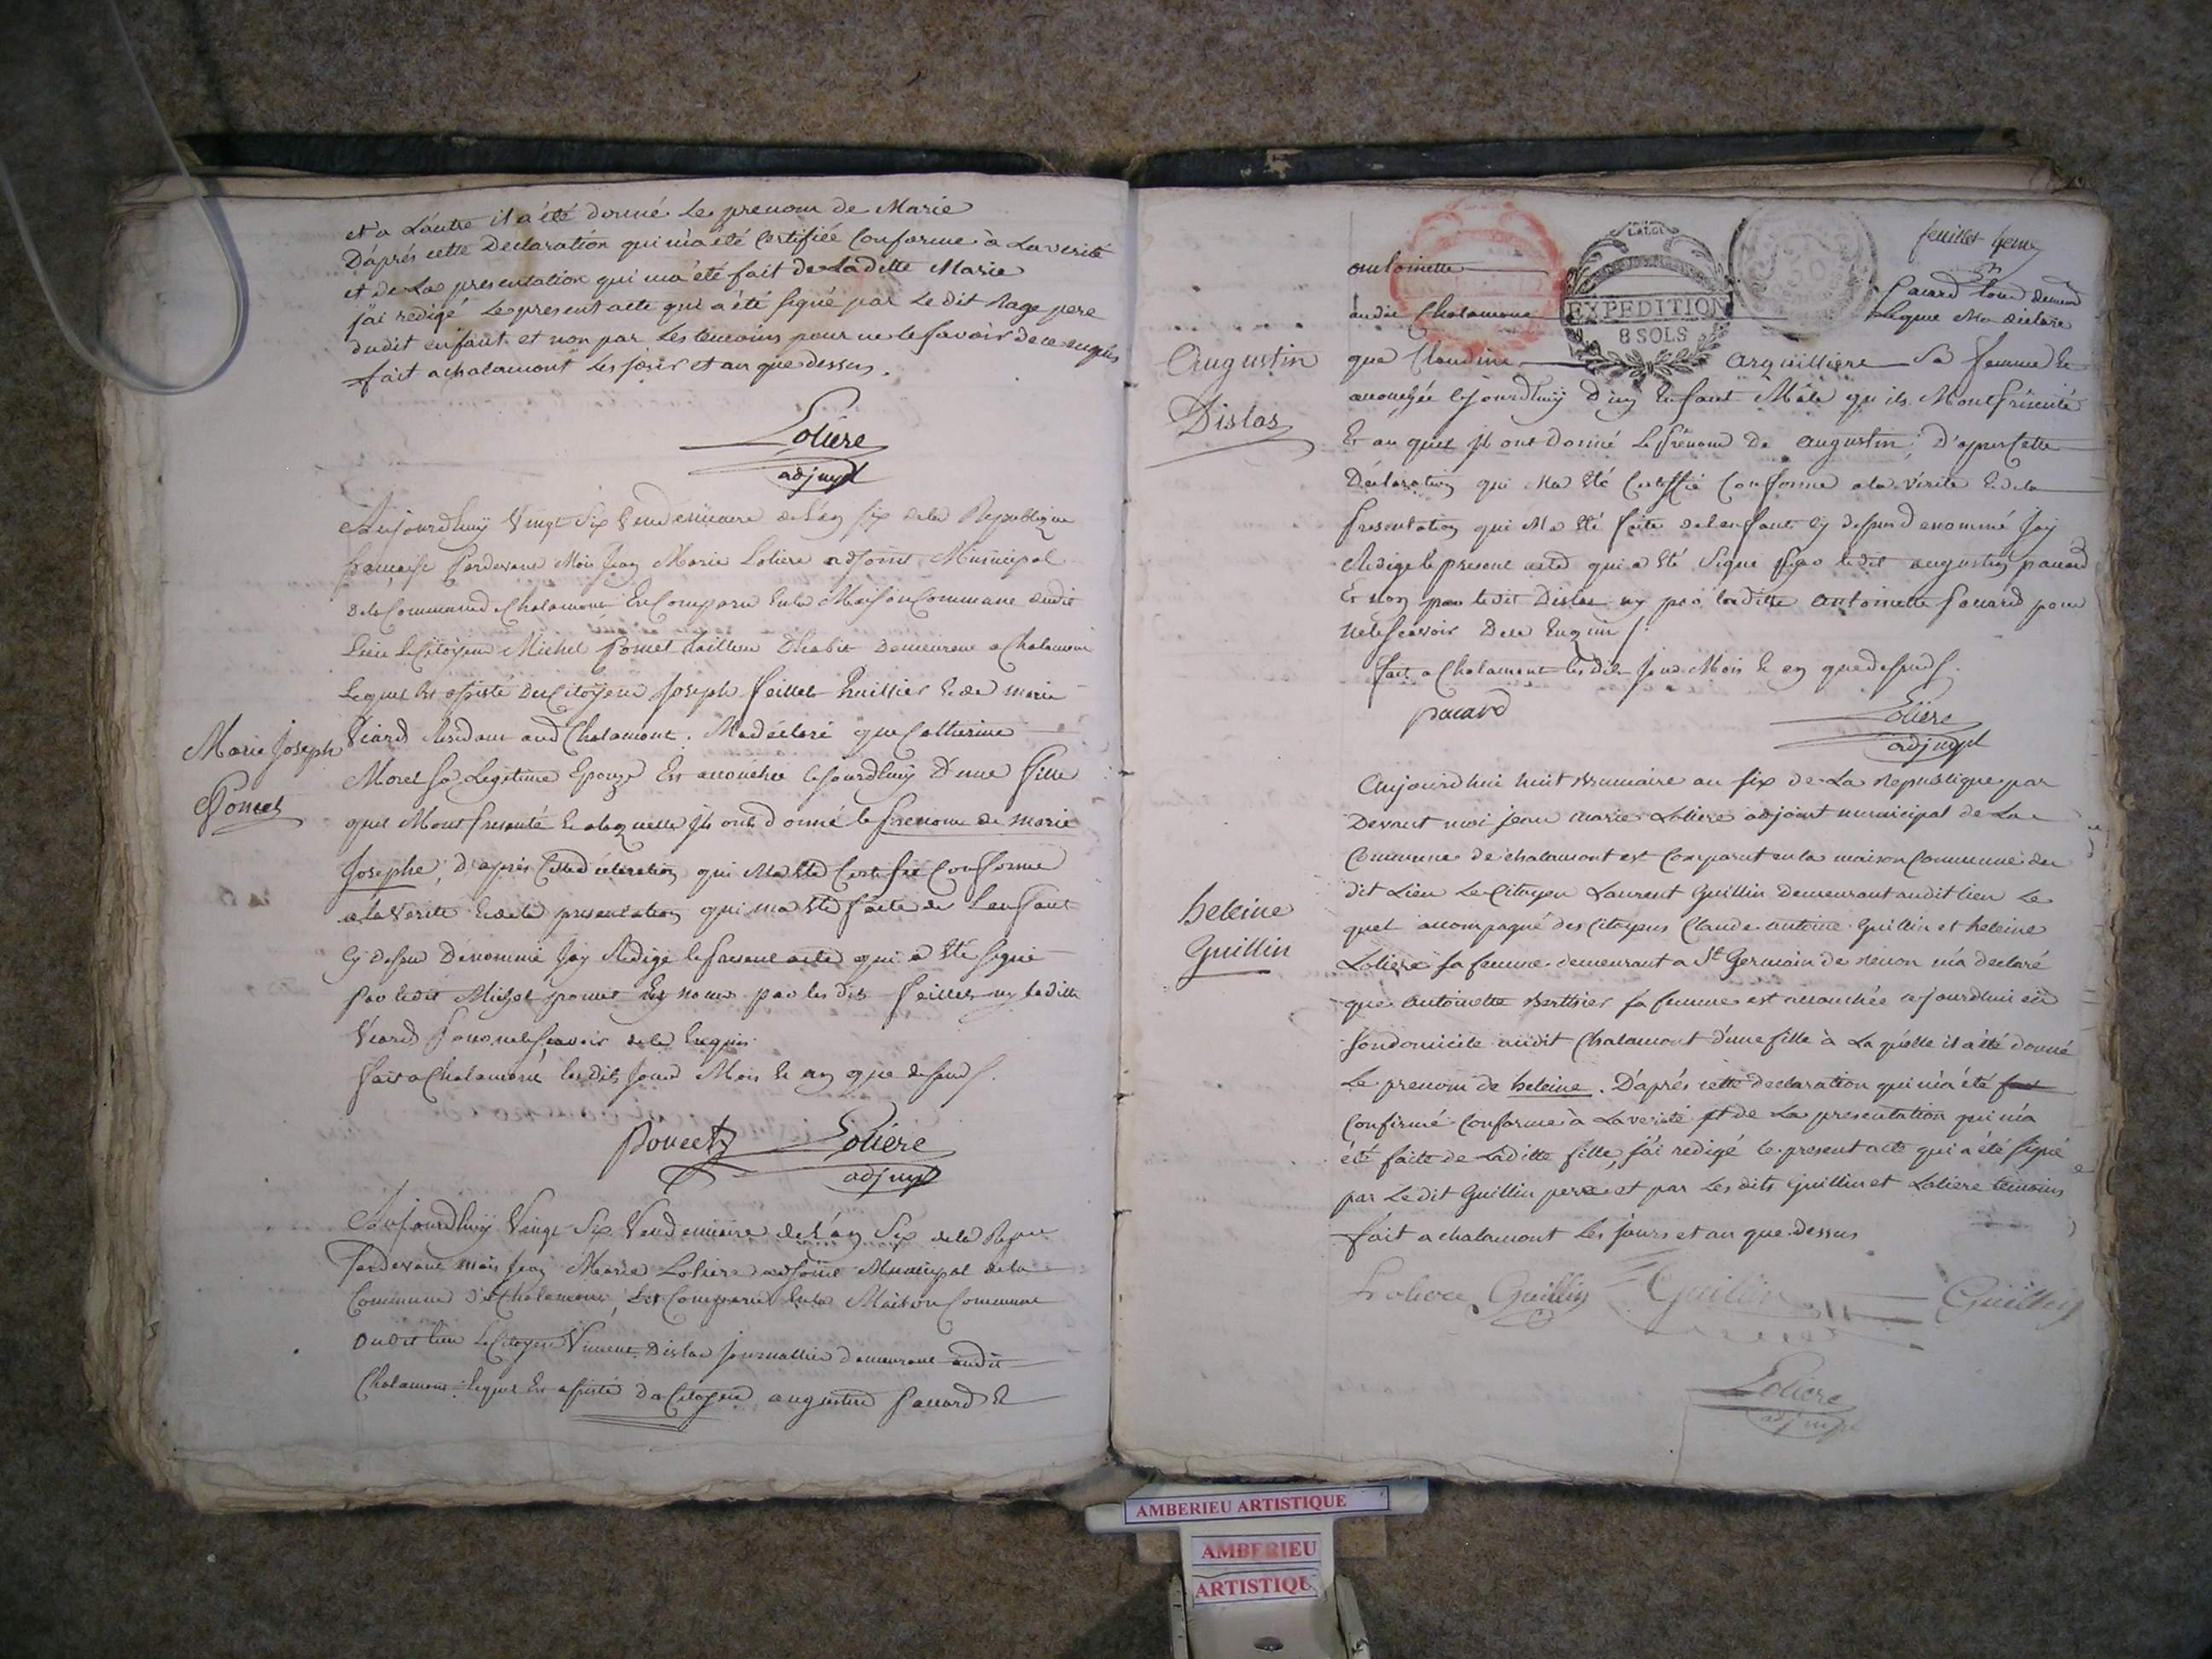 et a L'autre il a été donné Le prenom de Marie
D'aprés cette Declaration qui m'a été Certifiée Conforme à La verité
et de La presentation qui m'a été fait de Ladite Marie
j'ai redigé Le present acte qui a été signé par Le dit Nage pere
dudit enfant et non par Les temoins pour ne le savoir de ce enquis
fait a chalamont Les jours et an que dessus.
Loliere
adj mpl
Aujourdhuy Vingt Six Vendemiaire de L'an six de la Republique
francaise Pardevant Moi Jean Marie Loliere adjoint Municipal
de la Commune de Chalamont Est Comparu En la Maison Commune dudit
Lieu Le Citoyen Michel Pomet tailleur D'habit Demeurant a Chalamont
Lequel Est assisté du Citoyen Joseph feillet huissier Et de marie
Viard Residant aud Chalamont. M'a déclaré que Catherine
Marie Joseph
Pomet
Morel sa Legitime Epouze Est accouchée cejourdhuy D'une fille
quil M'ont presenté Et a laquelle Ils ont donné le prenom de marie
Josephe, D'aprés Cette déclaration qui M'a été Certifié Conforme
a La Verité Et de la presentation qui m'a été faite de L'enfant
Cy dessus Dénommé Jay Redigé le present acte qui a été signé
par ledit Michel pomet Et non par les dits feillet ny ladite
Viard Pour ne le scavoir de ce Enquis
fait a Chalamont les dits Jour Mois Et an que dessus
Poucet Loliere
adj mpl
Aujourdhuy Vingt Six Vendemiaire de L'an Six de la Repu
Pardevant moi Jean Marie Loliere adjoint Municipal de la
Commune de Chalamont, Est Comparu En la Maison Commune
Dudit lieu Le Citoyen Vincent Dislas journallier demeurant audit
Chalamont. lequel Est assisté du Citoyen augustin pacard Et
feuillet
antoinette
Pacard
audit Chalamont
EXPEDITION
8 SOLS
Lequel M'a déclaré
Augustin
Dislas
que Claudine arguilliere Sa femme Est
accouchée cejourdhuy D'un Enfant Mâle qu'ils M'ont présenté
Et au quel ils ont Donné Le Prénom De augustin, D'aprés Cette
Déclaration qui M'a été Certiffié Conforme a la vérité Et de la
Presentation qui M'a été faite de l'enfant Cy dessus denommé Jay
Redigé le present acte qui a été Signé par ledit augustin pacard
Et non par ledit Dislas ny par ladite antoinette pacard pour
ne le scavoir De ce Enquis
fait a Chalamont les dits Jour Mois Et an que dessus
pacard
Loliere
adj mpl
Aujourd'hui huit Brumaire an six de La Republique par
Devant moi jean marie Loliere adjoint municipal de La
Commune de chalamont est Comparut en la maison Commune du
dit Lieu Le Citoyen Laurent Guillin Demeurant audit lieu Le
heleine
Guillin
quel accompagné des Citoyens Claude antoine Guillin et heleine
Loliere sa femme demeurant a St Germain de renon m'a declaré
que antoinette Berthier sa femme est accouchée cejourdhui en
son domicile audit Chalamont d'une fille à La quelle il a été donné
Le prenom de heleine. D'aprés cette declaration qui m'a été
Confirmé Conforme à La verité et de La presentation qui m'a
été faite de Ladite fille, j'ai redigé le present acte qui a été signé
par Le dit Guillin pere et par Les dits Guillin et Loliere temoins
fait a chalamont Les jours et an que dessus
Loliere Guillin Guillin Guillin
Loliere
adj mpl
AMBERIEU ARTISTIQUE
AMBERIEU
ARTISTIQUE